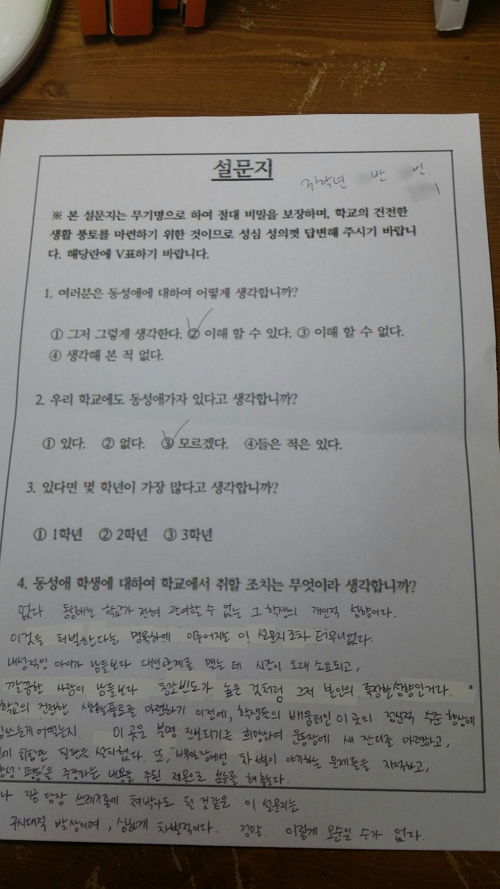 설문지
3학년 반 번
※ 본 설문지는 무기명으로 하여 절대 비밀을 보장하며, 학교의 건전한
생활 풍토를 마련하기 위한 것이므로 성심 성의껏 답변해 주시기 바랍니
다. 해당란에 V표하기 바랍니다.
1. 여러분은 동성애에 대하여 어떻게 생각합니까?
① 그저 그렇게 생각한다. ② 이해 할 수 있다. ③ 이해 할 수 없다.
④ 생각해 본 적 없다.
2. 우리 학교에도 동성애가자 있다고 생각합니까?
① 있다. ② 없다. ③ 모르겠다. ④들은 적은 있다.
3. 있다면 몇 학년이 가장 많다고 생각합니까?
① 1학년 ② 2학년 ③ 3학년
4. 동성애 학생에 대하여 학교에서 취할 조치는 무엇이라 생각합니까?
없다. 동성애는 학교가 전혀 관여할 수 없는 그 학생의 개인적 성향이다.
이것을 처벌한다는 명목하에 이루어지는 이 설문지조차 터무니없다.
내성적인 아이가 남들보다 대인관계를 맺는 데 시간이 오래 소요되고,
깔끔한 사람이 남들보다 청소빈도가 높은 것처럼 그저 본인의 특징한 성향인거다.
학교의 건전한 생활풍토를 마련하기 이전에, 학생들의 배움터인 이 곳의 정신적 수준 향상에
힘쓰는게 어떻는지. 이 곳은 북면 진보되기를 희망하여 운동장에 새 잔디를 마련하고,
설치했다. 또, 에선 차별이 야기하는 문제들을 지적하고,
'평등'을 주장하는 내용을 주된 제목으로 를 해놓는다.
지금 당장 쓰레기통에 쳐박아도 될 것같은 이 설문지는
구시대적 발상이며, 심하게 차별적이다. 정말 이렇게 모순일 수가 없다.